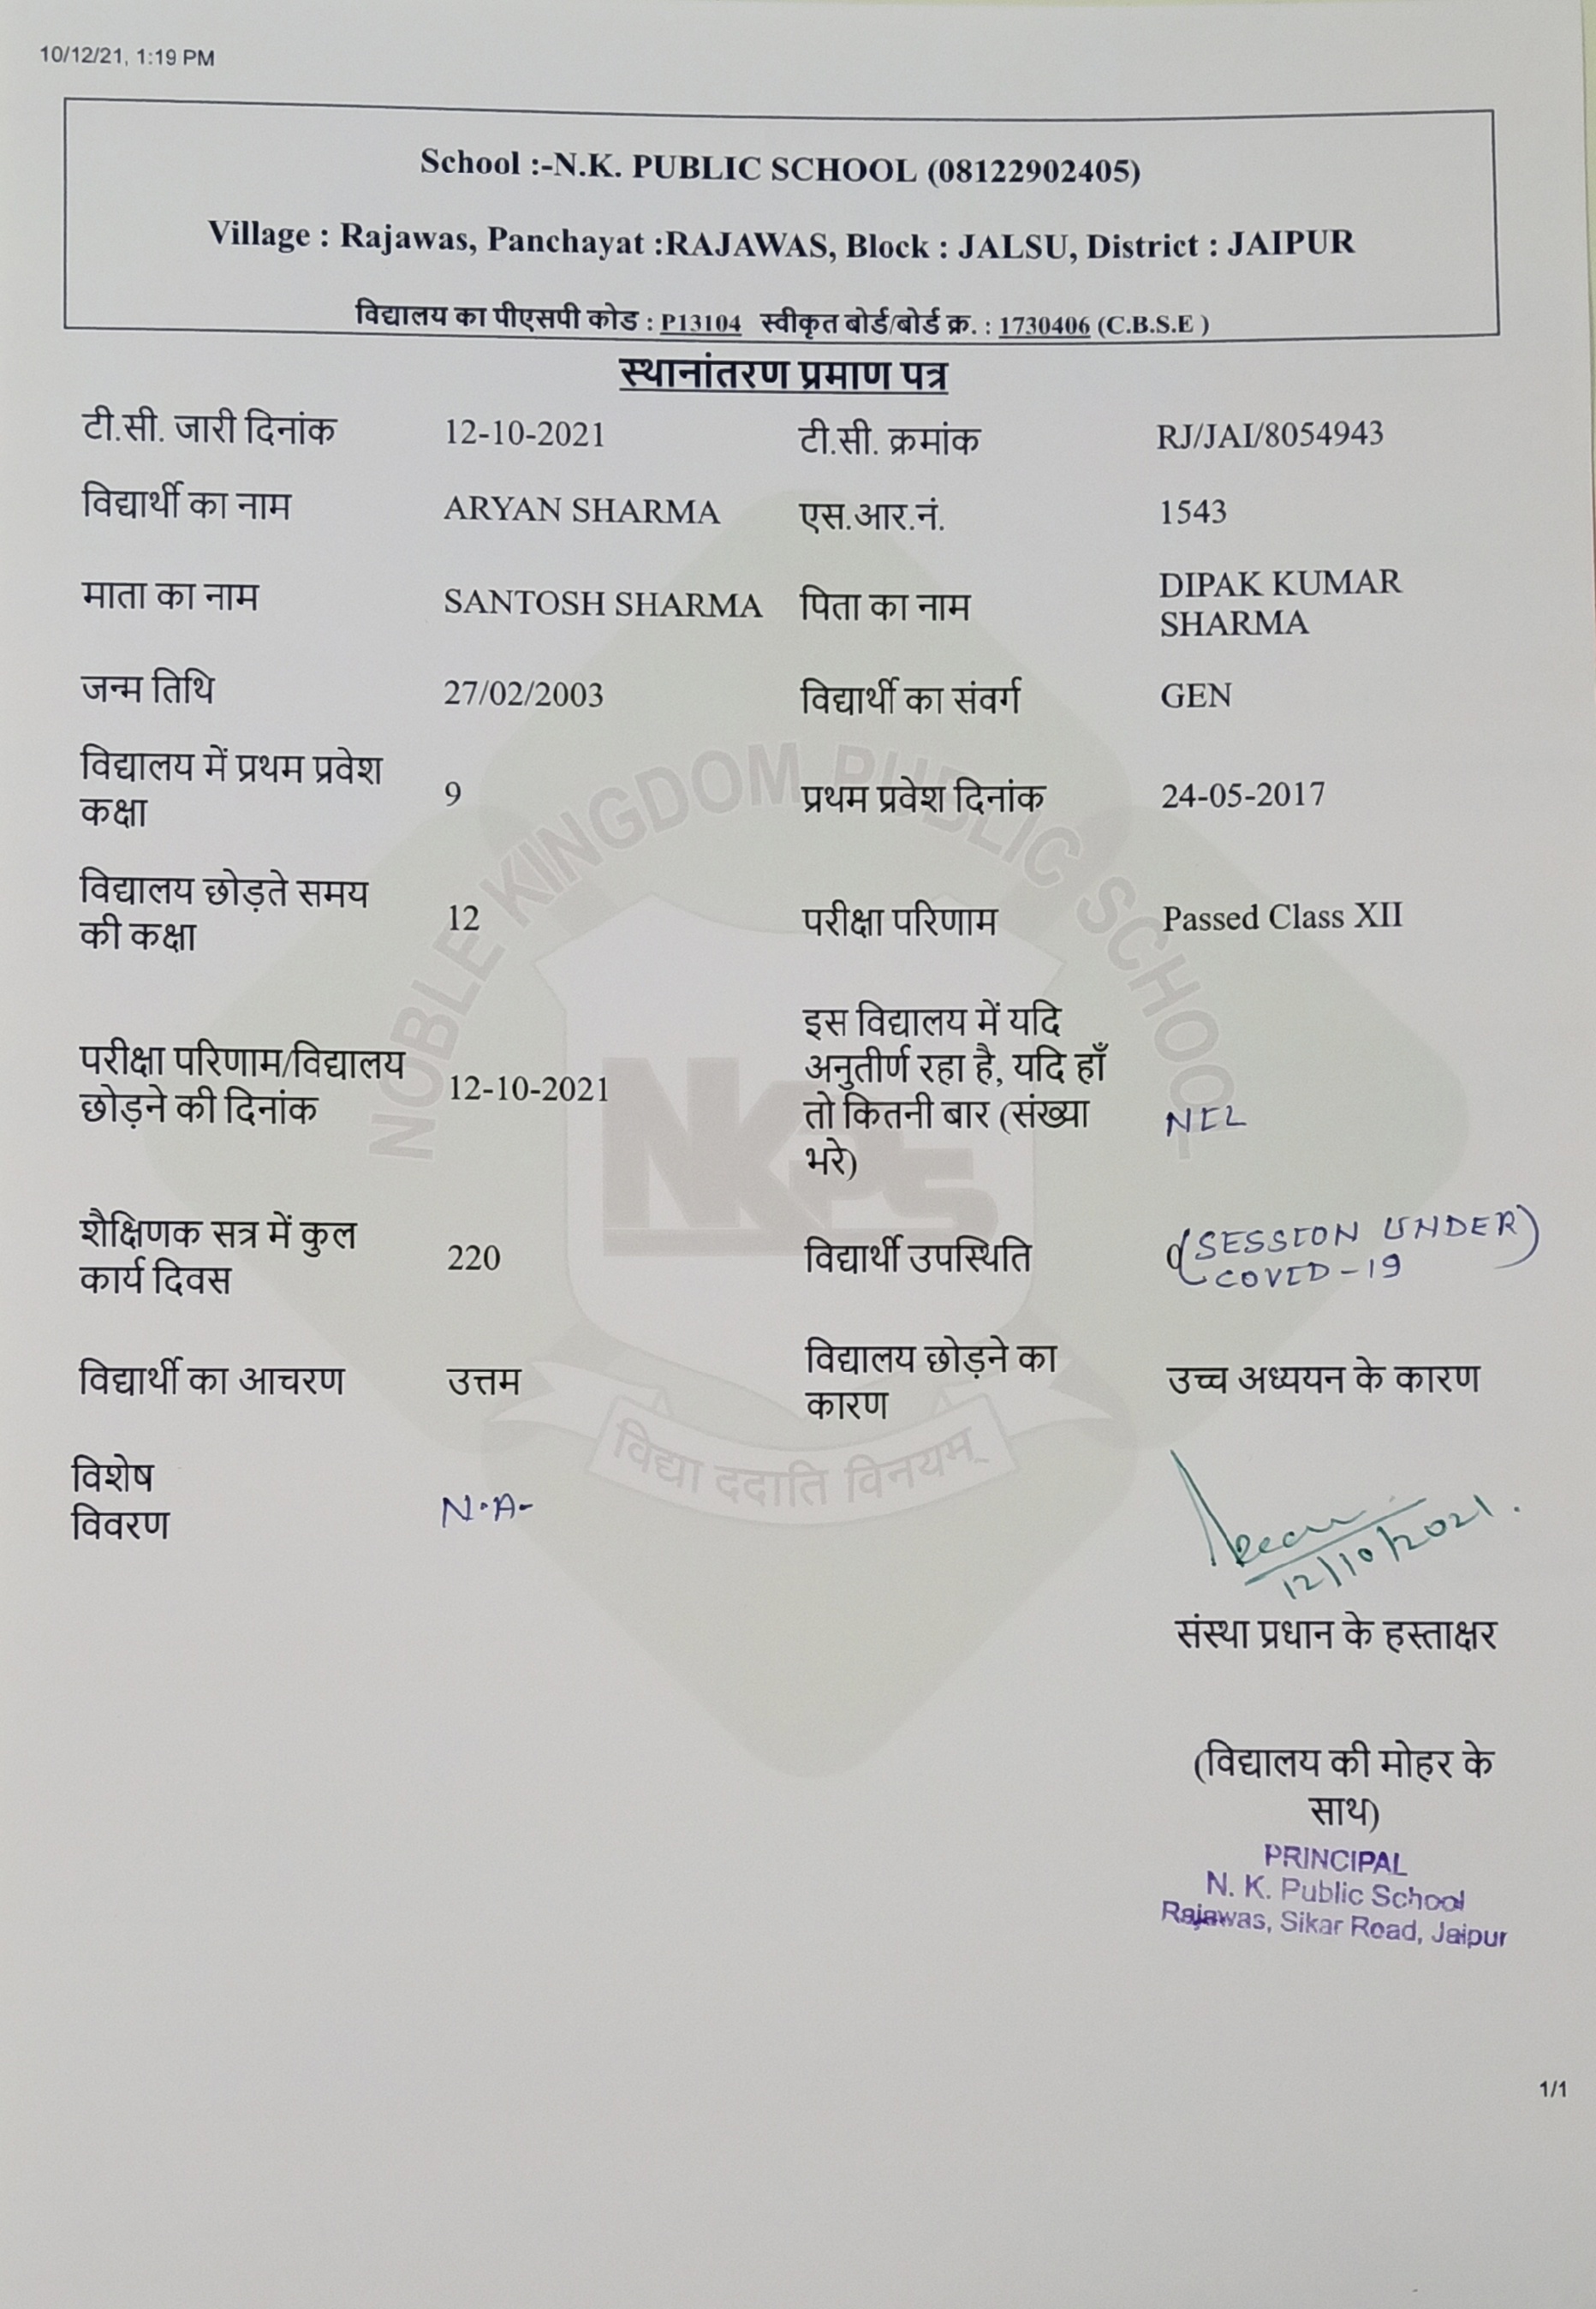 10/12/21, 1:19 PM
School :-N.K. PUBLIC SCHOOL (08122902405)
Village : Rajawas, Panchayat :RAJAWAS, Block : JALSU, District : JAIPUR
विद्यालय का पीएसपी कोड : P13104 स्वीकृत बोर्ड/बोर्ड क्र. : 1730406 (C.B.S.E )
स्थानांतरण प्रमाण पत्र
टी.सी. जारी दिनांक 12-10-2021 टी.सी. क्रमांक RJ/JAI/8054943
विद्यार्थी का नाम ARYAN SHARMA एस.आर.नं. 1543
माता का नाम SANTOSH SHARMA पिता का नाम DIPAK KUMAR
SHARMA
जन्म तिथि 27/02/2003 विद्यार्थी का संवर्ग GEN
विद्यालय में प्रथम प्रवेश
कक्षा
9
प्रथम प्रवेश दिनांक 24-05-2017
विद्यालय छोड़ते समय
की कक्षा
12
परीक्षा परिणाम Passed Class XII
परीक्षा परिणाम/विद्यालय
छोड़ने की दिनांक
12-10-2021
इस विद्यालय में यदि
अनुतीर्ण रहा है, यदि हाँ
तो कितनी बार (संख्या
भरे)
NIL
शैक्षिणक सत्र में कुल
कार्य दिवस
220
विद्यार्थी उपस्थिति
(SESSION UNDER)
COVID-19
विद्यार्थी का आचरण उत्तम
विद्यालय छोड़ने का
कारण
उच्च अध्ययन के कारण
विशेष
विवरण
N.A-
12/10/2021.
संस्था प्रधान के हस्ताक्षर
(विद्यालय की मोहर के
साथ)
PRINCIPAL
N. K. Public School
Rajawas, Sikar Road, Jaipur
1/1
NOBLE KINGDOM PUBLIC SCHOOL
NKPS
विद्या ददाति विनयम्